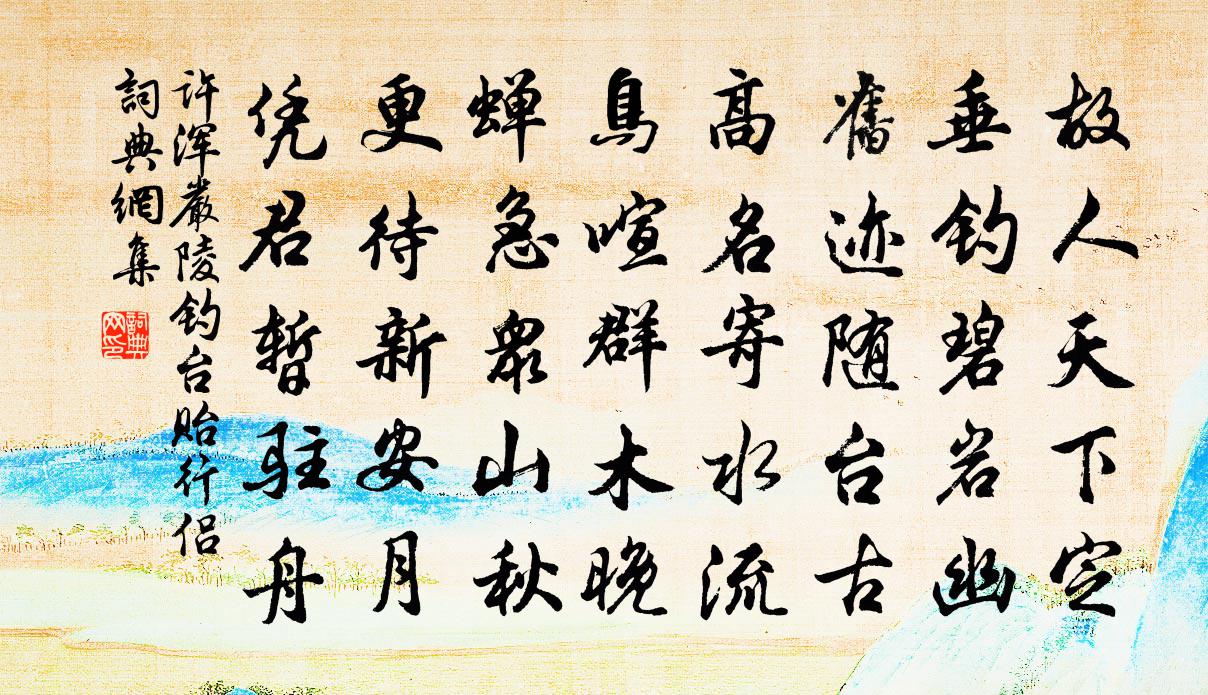 故人天下定
垂钓碧岩幽
旧迹随台古
高名寄水流
鳥喧群木晚
蝉急眾山秋
更待新安月
凭君暫駐舟
许浑嚴陵钓台贻行侣
詞典網集
詞典網印